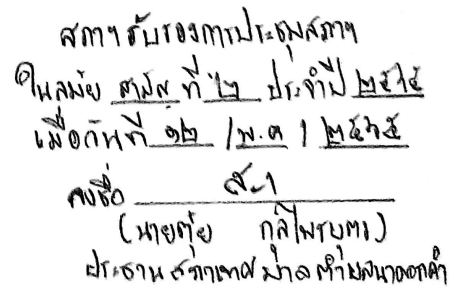 สภาฯ รับรองการประชุมสภาฯ
ในสมัย สามัญ ที่ ๒ ประจำปี ๒๕๖๕
เมื่อวันที่ ๑๒ / พ.ค / ๒๕๖๕
ลงชื่อ
(นายตุ้ย กุลไพรบุตร)
ประธานสภาเทศบาลตำบล